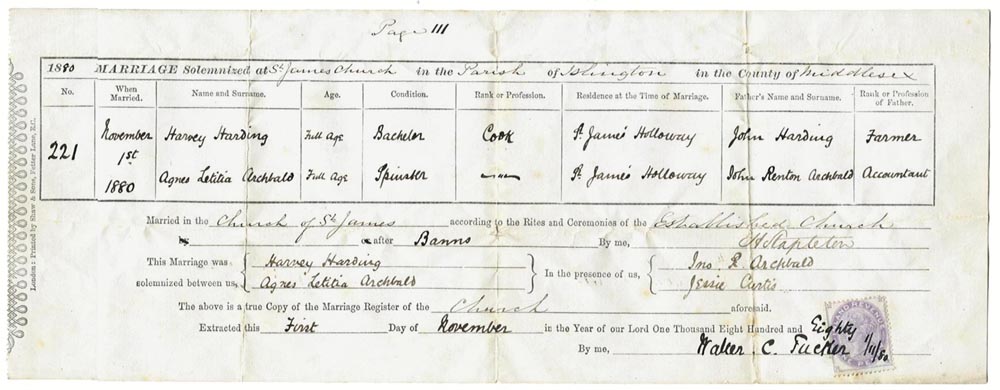 Page 111
1880 MARRIAGE Solemnized at St James Church in the Parish of Islington in the County of Middlesex
No. When Married. Name and Surname. Age. Condition. Rank or Profession. Residence at the Time of Marriage. Father's Name and Surname. Rank or Profession of Father.
221 November 1st 1880 Harvey Harding Full Age Bachelor Cook St James Holloway John Harding Farmer
Agnes Letitia Archbald Full Age Spinster — St James Holloway John Renton Archbald Accountant
Married in the Church of St James according to the Rites and Ceremonies of the Established Church
by or after Banns By me, H Stapleton
This Marriage was solemnized between us, Harvey Harding Agnes Letitia Archbald In the presence of us, Jno R Archbald Jessie Curtis
The above is a true Copy of the Marriage Register of the Church aforesaid.
Extracted this First Day of November in the Year of our Lord One Thousand Eight Hundred and Eighty
By me, Walter C. Tucker 1/11/80
London: Printed by Shaw & Sons, Fetter Lane, E.C.